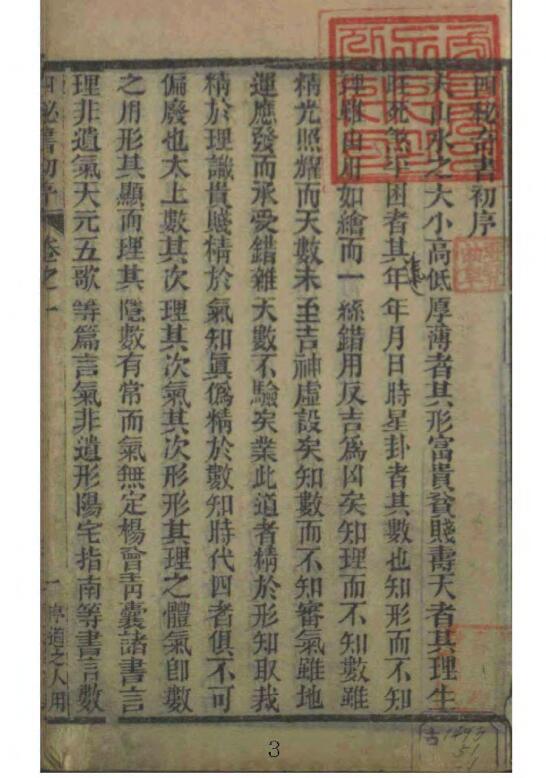 四秘奇書初序
夫山水之大小高低厚薄者其形富貴貧賤壽夭者其理生
旺死煞 囚者其年年月日時星卦者其數也知形而不知
理雖山川如繪而一絲錯用反吉為凶矣知理而不知數雖
精光照耀而天數未至吉神虛設矣知數而不知審氣雖地
運應發而承受錯雜天數不驗矣業此道者精於形知取裁
精於理識貴賤精於氣知眞僞精於數知時代四者俱不可
偏廢也太上數其次理其次氣其次形形其理之體氣卽數
之用形其顯而理其隱數有常而氣無定楊曾靑囊諸書言
理非遺氣天元五歌等篇言氣非遺形陽宅指南等書言數
四秘書初序 卷之一 一 序道之人用
3
吉
1293
51